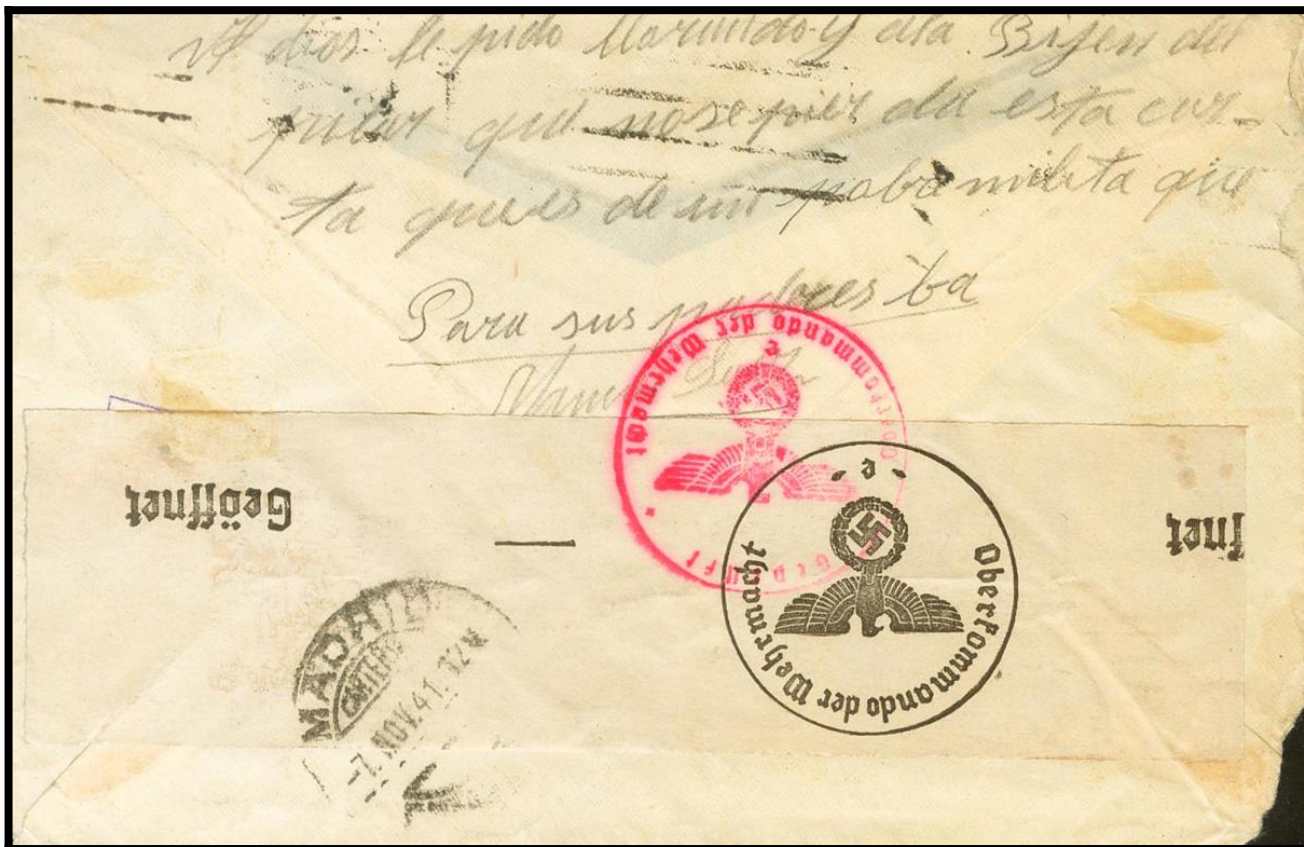 A dios le pido llorando y ala Bijen del
pilar que nose pier da esta car-
ta ques de un milita que
Para sus padres ba
Oberkommando der Wehrmacht
e
Geprüft
Geöffnet
fnet
- e -
Oberkommando der Wehrmacht
MADRID
-7.NOV.41.12M